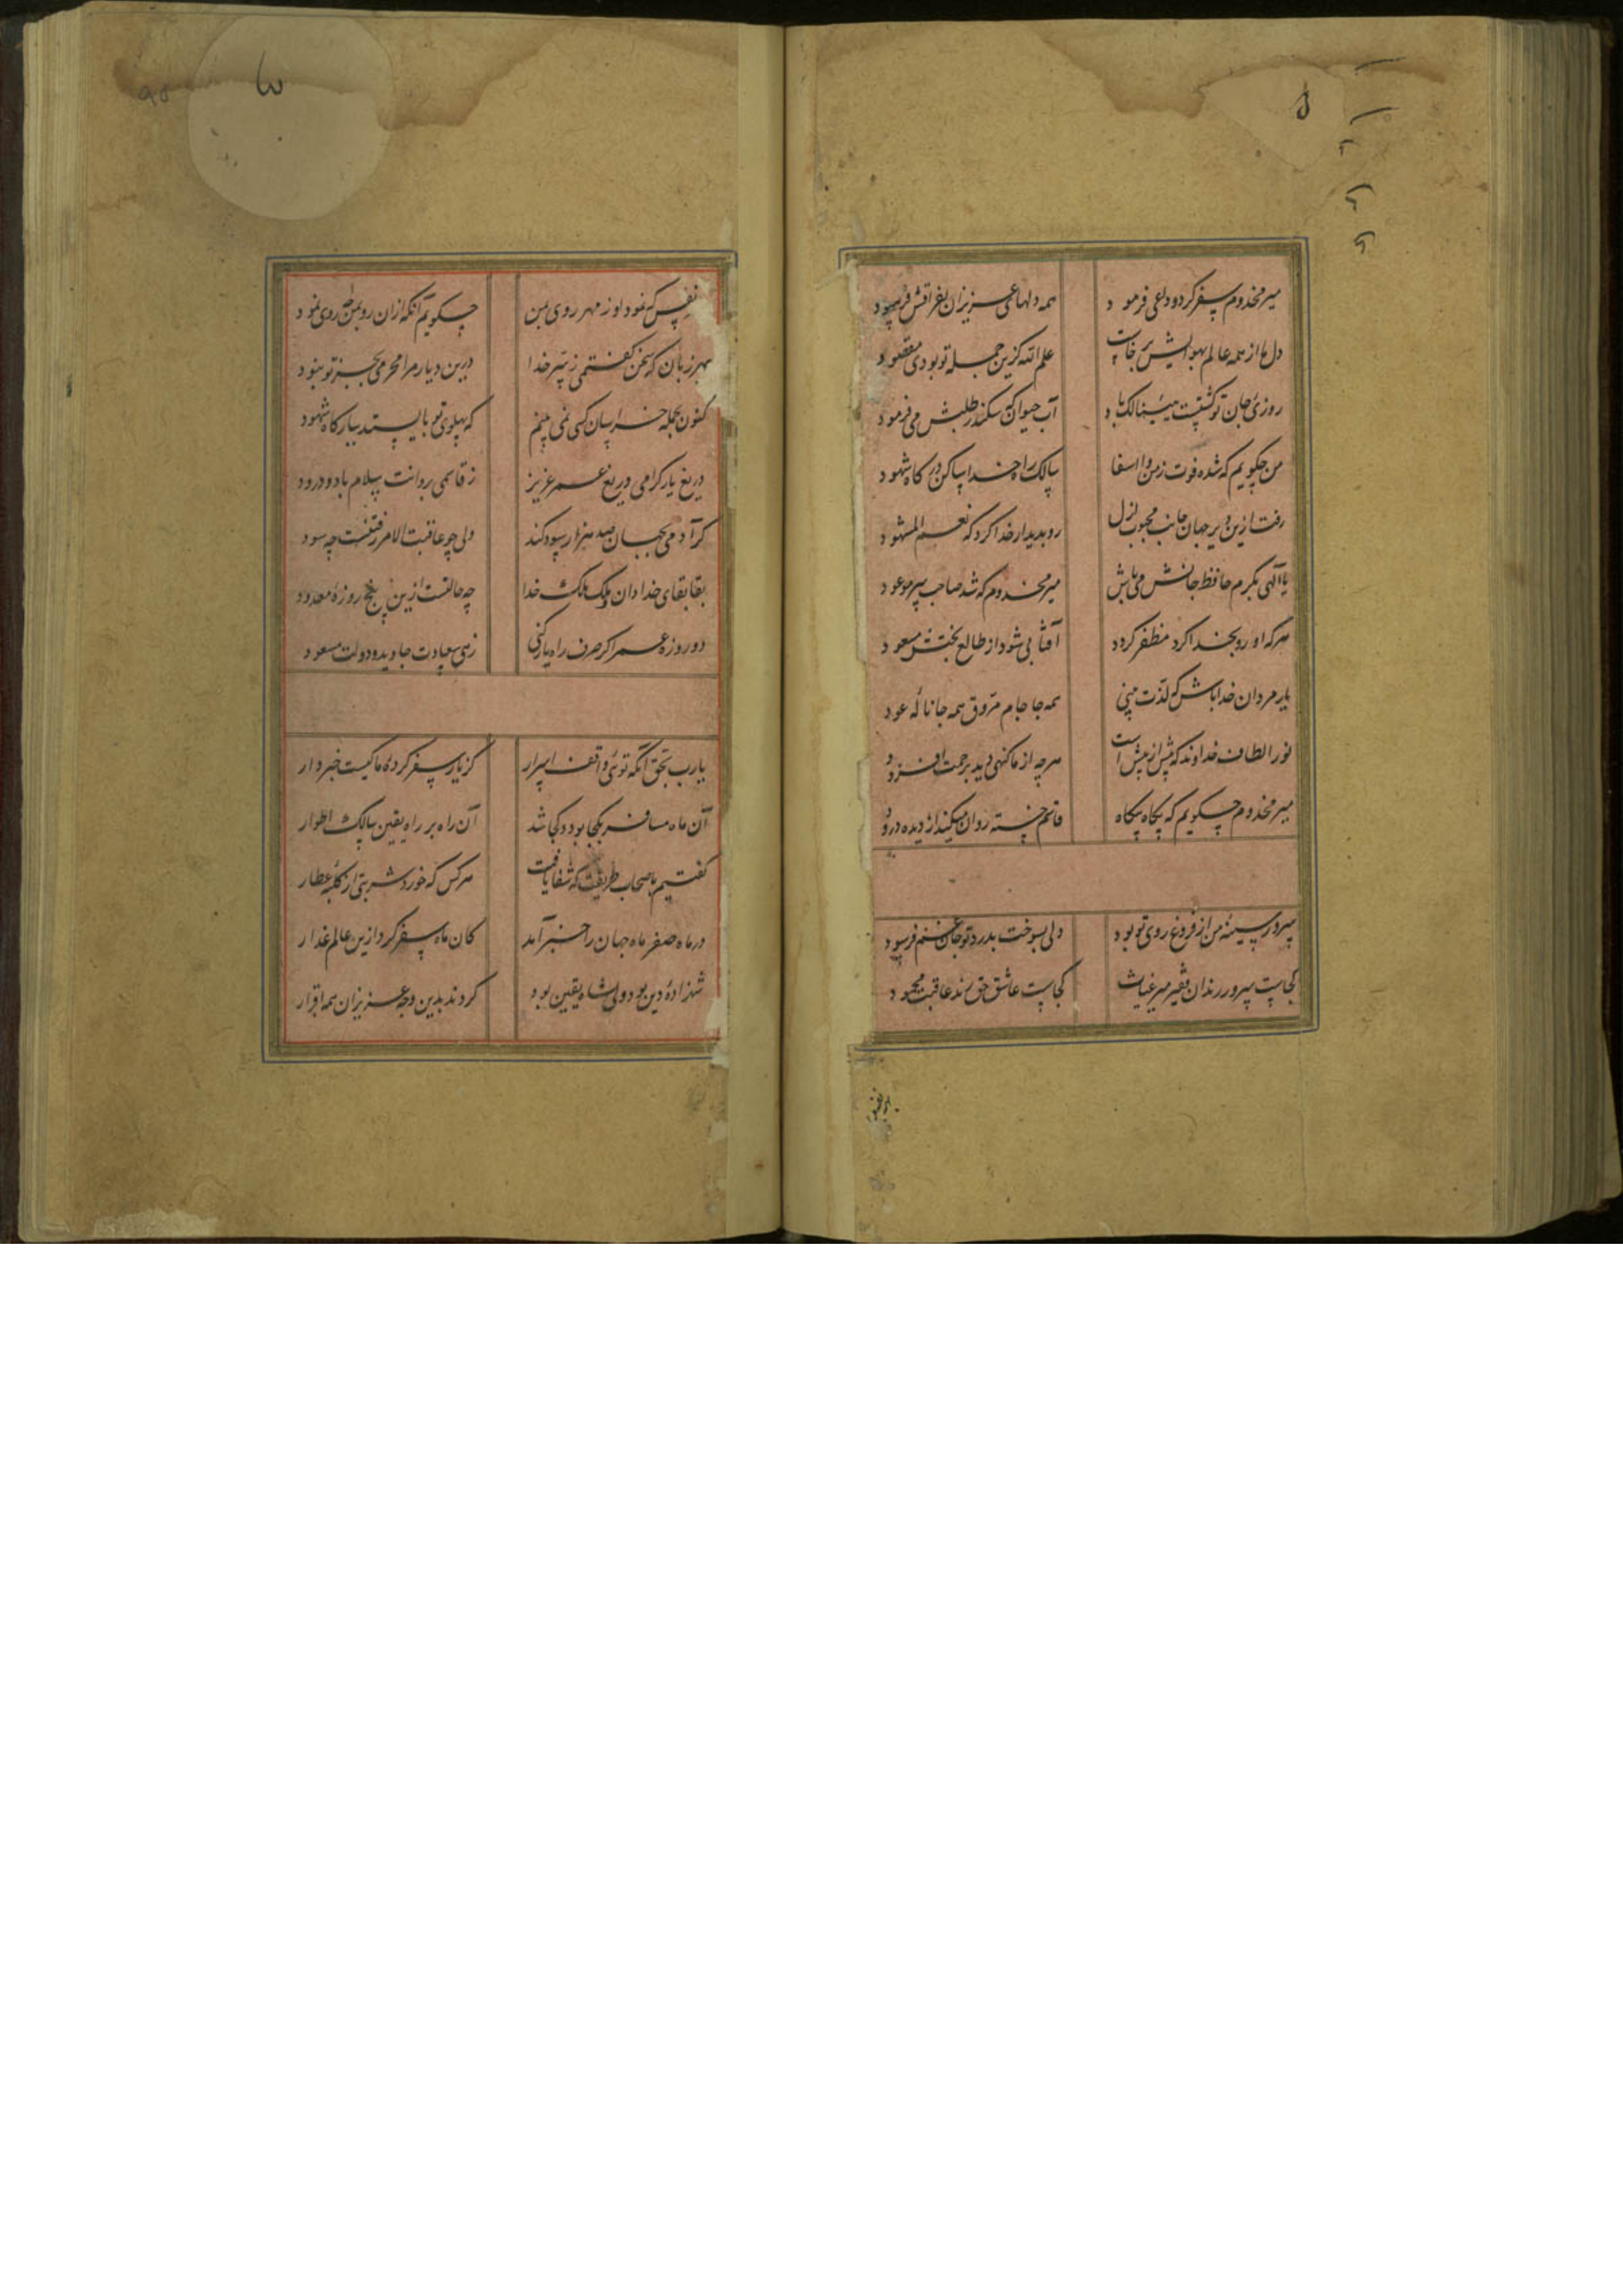 میر مخدوم سفر کرد و دلعی فرمود همه دلهای عزیزان بفراقش فرسود
دل ما از همه عالم بهوایش برخاست علم الله کزین جمله تو بودی مقصود
روزی جان تو گشتست هنیئا لک باد آب حیوان که سکندر طلبش می فرمود
من چکویم که شده فوت ز من وا اسفا سالک راه خدا ساکن درکاه شهود
رفت ازین دیر جهان جانب محبوب ازل رو بدیدار خدا کرد که نعم المشهود
یا الهی بکرم حافظ جانش می باش میر مخدوم که شد صاحب سر موعود
هر که او رو بخدا کرد مظفر کردد آفتابی شود از طالع بختش مسعود
یار مردان خدا باش که لذت بینی همه جا جام مروق همه جا ناله عود
نور الطاف خداوند که بیش از بیش است هر چه از ما کنهی دید برحمت افزود
میر مخدوم چکویم که بیکاه بیکاه قاسم خسته روان میکند از دیده درود
سرور سینه من از فروغ روی تو بود دلی بسوخت بدرد تو جان غم فرسود
کجاست سرور رندان فقیر میر غیاث کجاست عاشق حق سند عاقبت محمود
نفس که نمود او ز مهر روی بمن چکویم آنکه ازان رو بمن چه روی نمود
بهر زبان که سخن کفتمی ز سر خدا درین دیار مرا محرمی بجز تو نبود
کنون بجمله خراسان کسی نمی بینم که پهلوی تو بایستد ببارکاه شهود
دریغ یار کرامی دریغ عمر عزیز ز قاسمی بروانت سلام باد و درود
کر آدمی بجهان صد هزار سود کند ولی چو عاقبت الامر رفتنست چه سود
بقا بقای خدا دان و ملک ملک خدا چه حالتست ازین پنج روزه معدود
دو روزه عمر اکر صرف راه یار کنی زهی سعادت جاوید و دولت مسعود
یارب بحق آنکه تویی واقف اسرار کز یار سفر کرده ما کیست خبردار
آن ماه مسافر بکجا بود و کجا شد آن راه بر راه یقین سالک اطوار
کفتیم باصحاب طریقت که شفا یافت هر کس که خورد شربتی از کلبه عطار
در ماه صفر ماه جهان را خبر آمد کان ماه سفر کرد ازین عالم غدار
شهزاده دین بود ولی شاه یقین بود کردند بدین وجه عزیزان همه اقرار